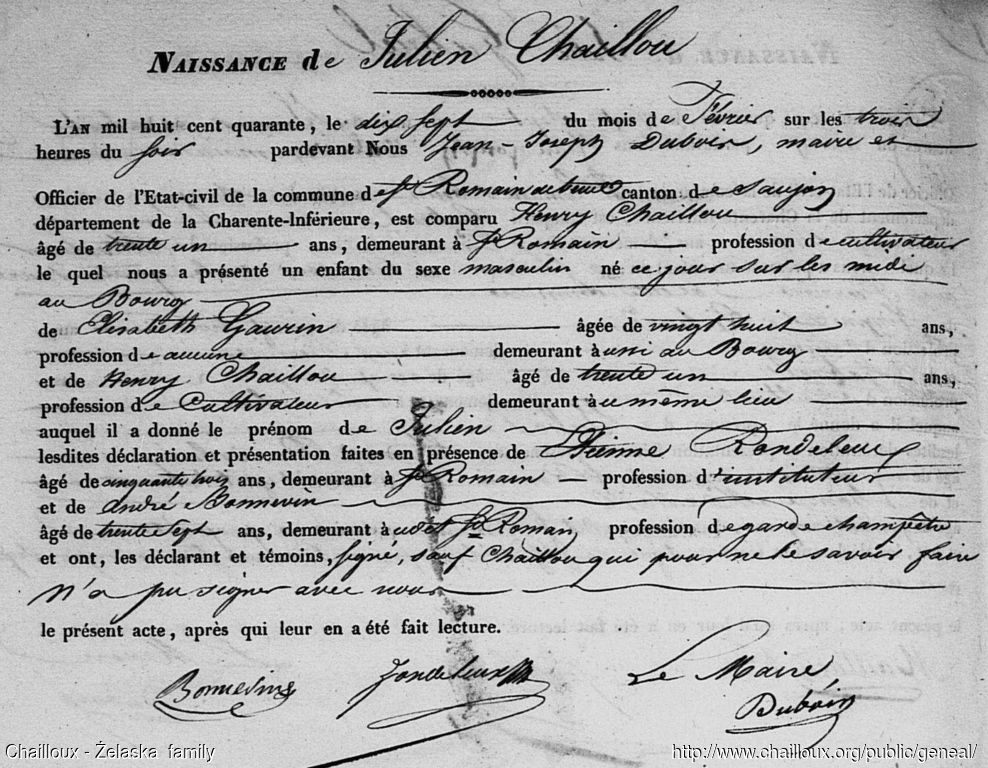 NAISSANCE de Julien Chaillou
L'AN mil huit cent quarante, le dix sept du mois de Février sur les trois
heures du soir pardevant Nous Jean-Joseph Dubois, maire et
Officier de l'Etat-civil de la commune de St Romain de canton de Saujon
département de la Charente-Inférieure, est comparu Henry Chaillou
âgé de trente un ans, demeurant à St Romain profession de cultivateur
le quel nous a présenté un enfant du sexe masculin né ce jour sur les midi
au Bourg
de Elisabeth Gaurin âgée de vingt huit ans,
profession de aucune demeurant à aussi au Bourg
et de Henry Chaillou âgé de trente un ans,
profession de Cultivateur demeurant à u même lieu
auquel il a donné le prénom de Julien
lesdites déclaration et présentation faites en présence de Etienne
âgé de cinquante trois ans, demeurant à St Romain profession d'instituteur
et de andré Bonnevin
âgé de trente sept ans, demeurant à udit St Romain profession de garde champêtre
et ont, les déclarant et témoins, signé, sauf Chaillou qui pour ne le savoir faire
n'a pu signer avec nous
le présent acte, après qui leur en a été fait lecture.
Le Maire,
Dubois
Chailloux - Żelaska family http://www.chailloux.org/public/geneal/